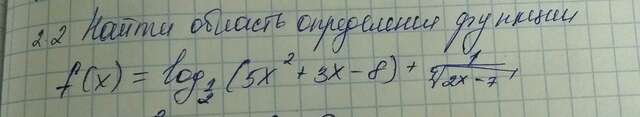 2.2 Найти область определения функции
f(x) = log_{1/2} (5x² + 3x - 8) + 1/√(2x - 7)